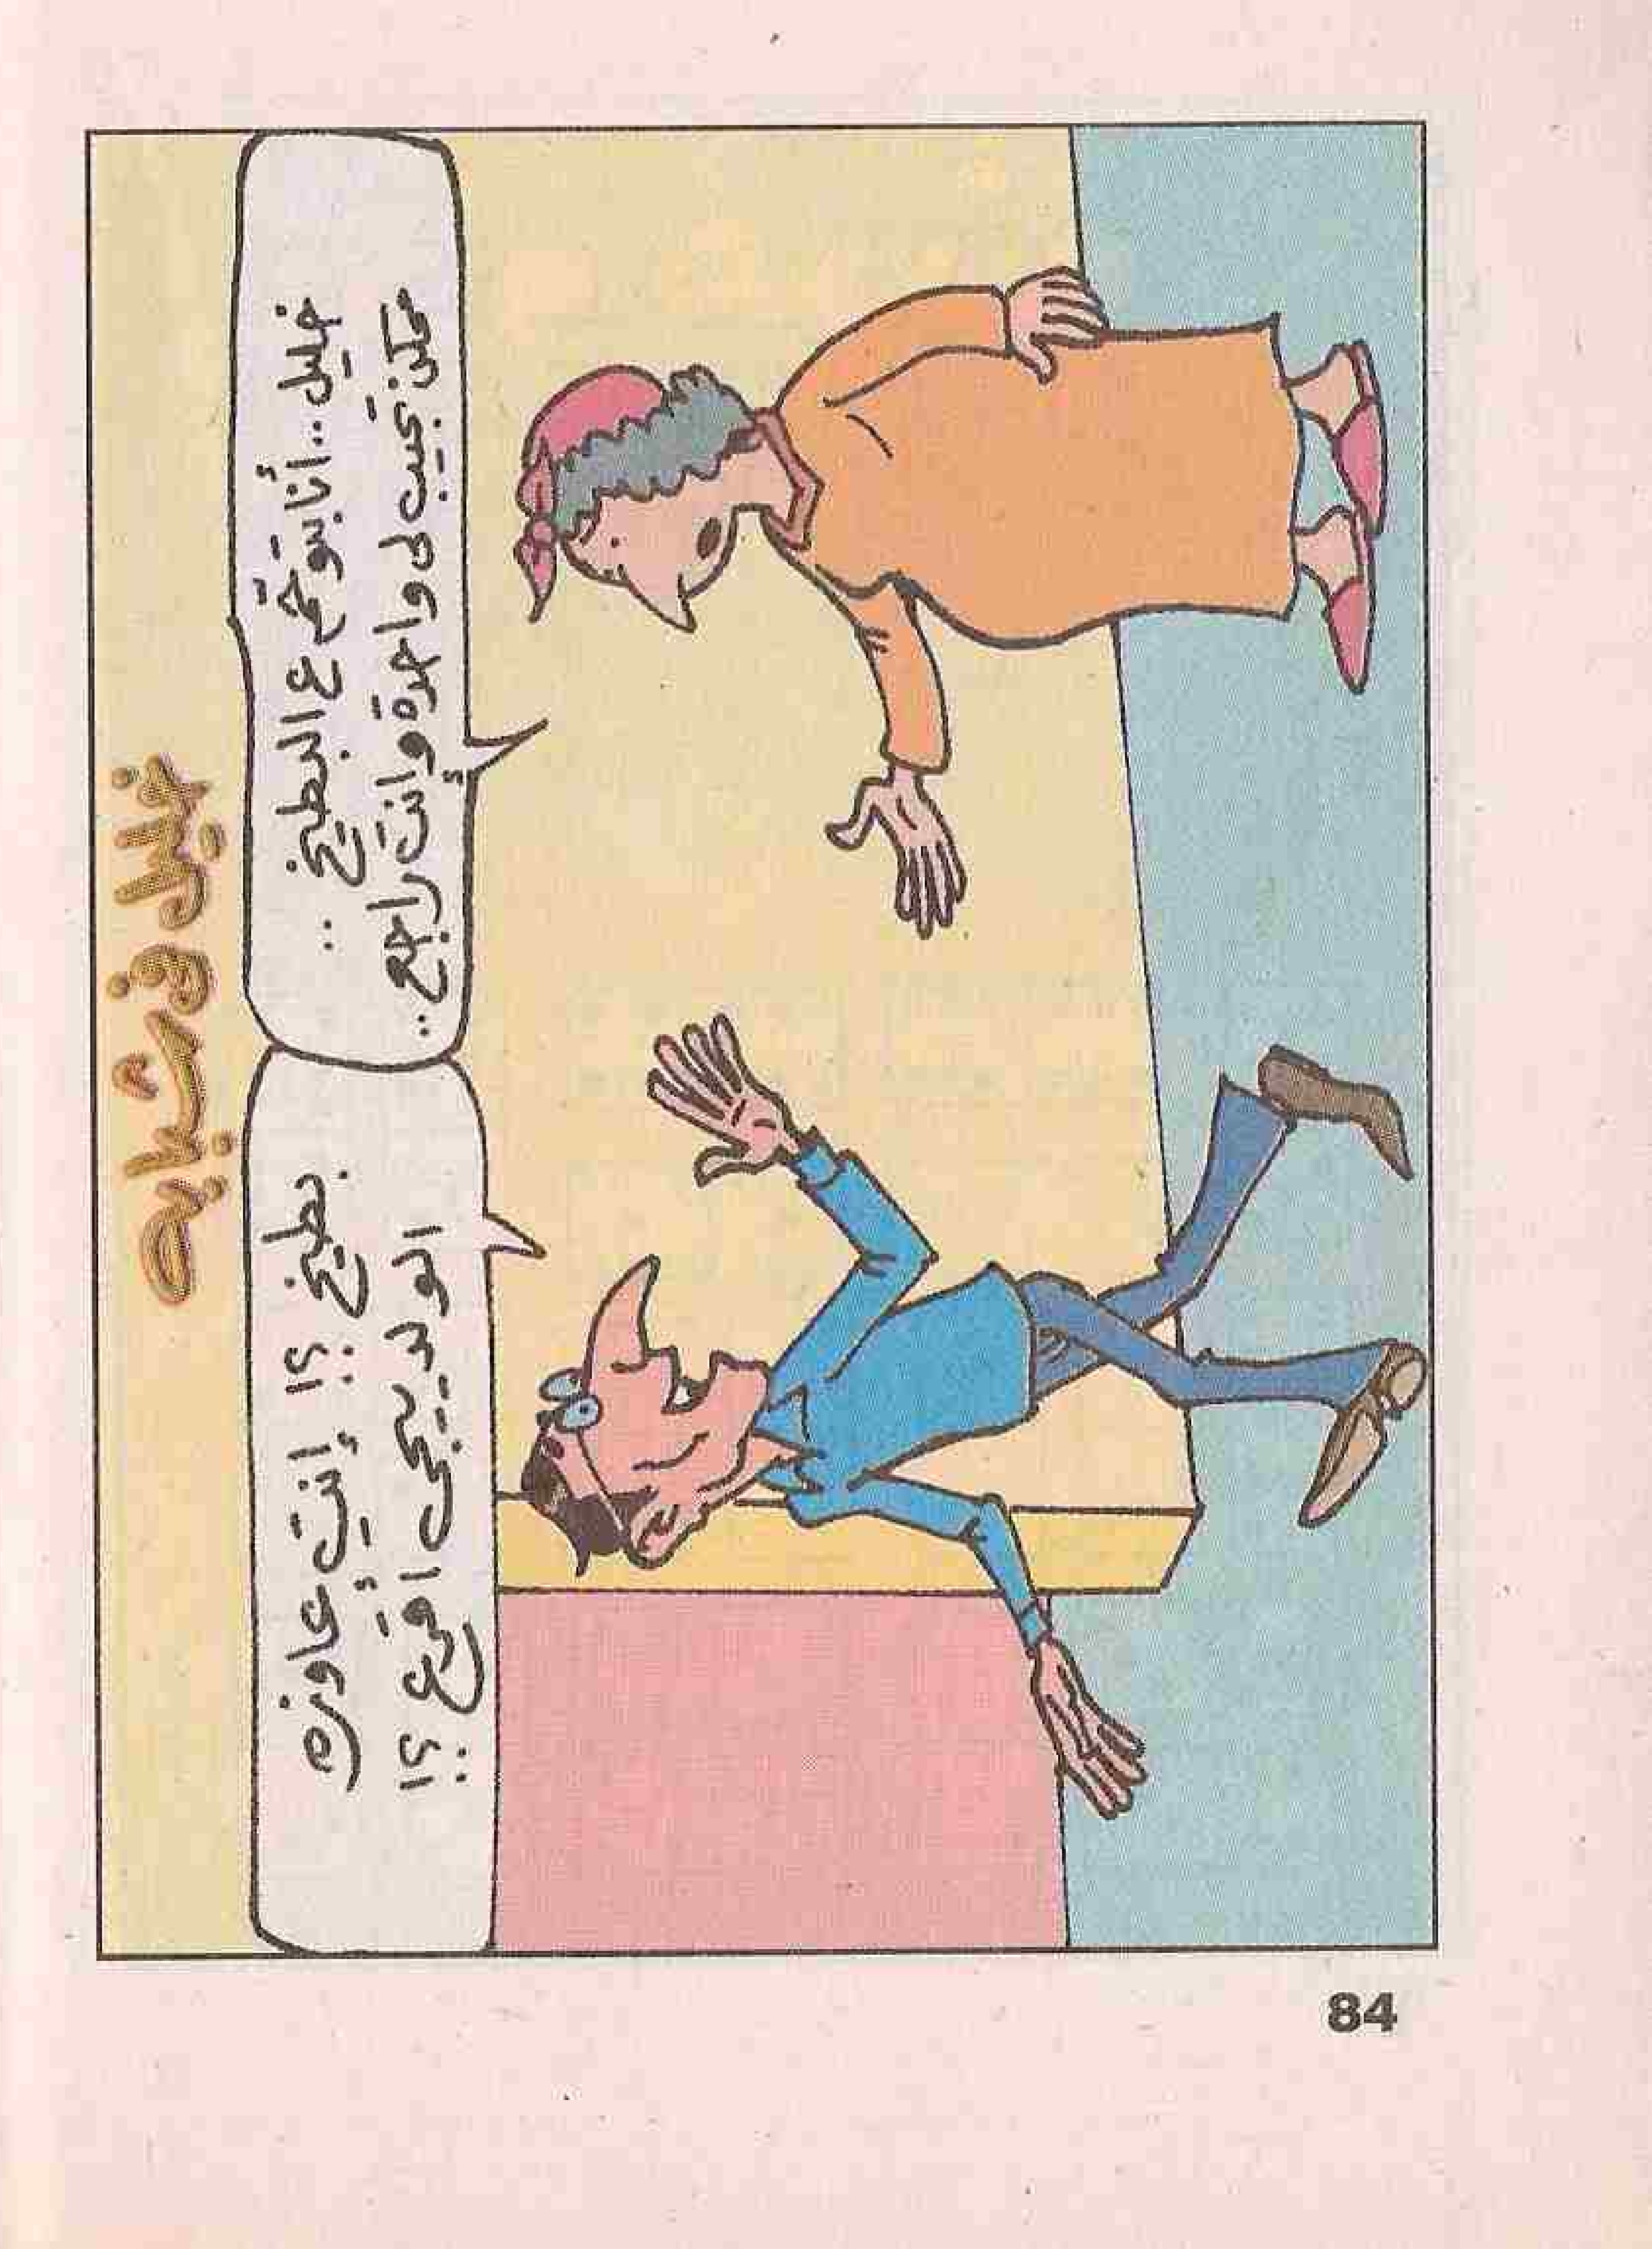 خليل.. أنا بتوحّم ع البطيخ ..
ممكن تجيب لى واحدة وإنت راجع ..
بطيخ ؟! إنتِ عاوزه
الولد ييجى أقرع ؟!
84